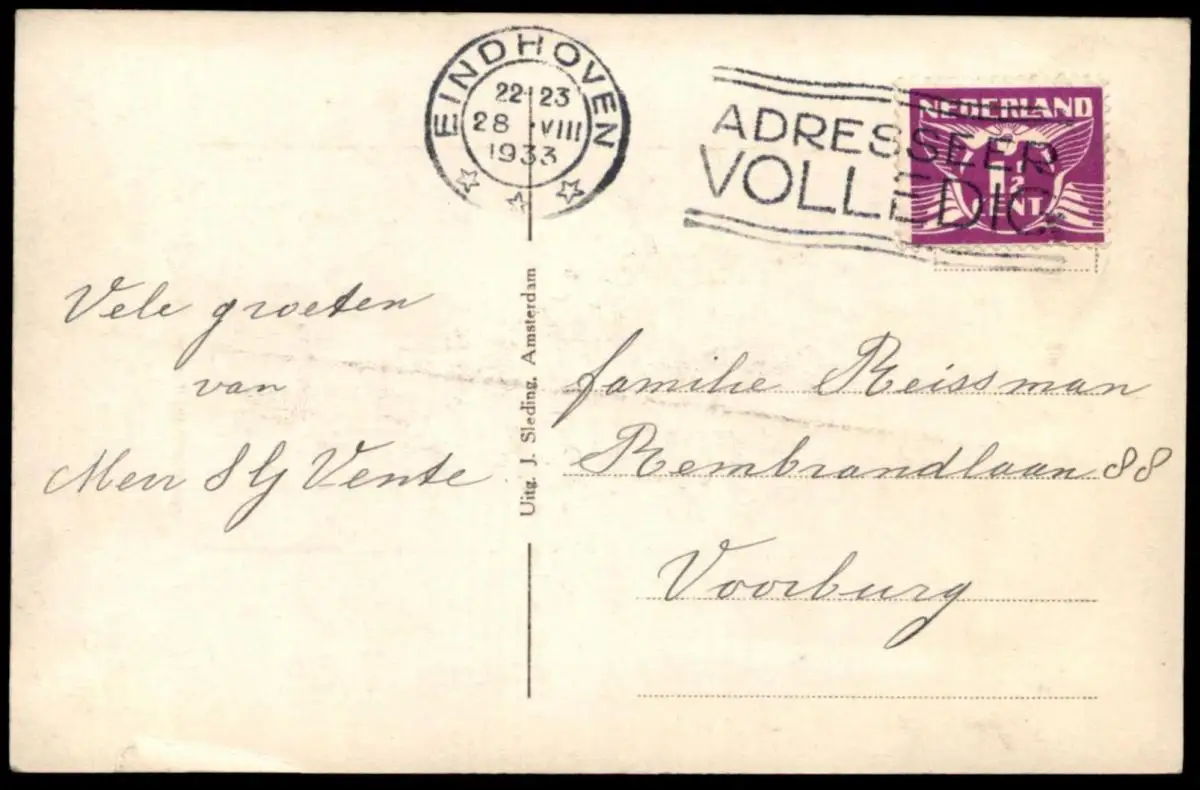 EINDHOVEN
22-23
28 VIII
1933
ADRESSEER
VOLLEDIG
NEDERLAND
1½
CENT
Vele groeten
van
Vente
Uitg. J. Sleding, Amsterdam
familie Reissman
Rembrandlaan 88
Voorburg